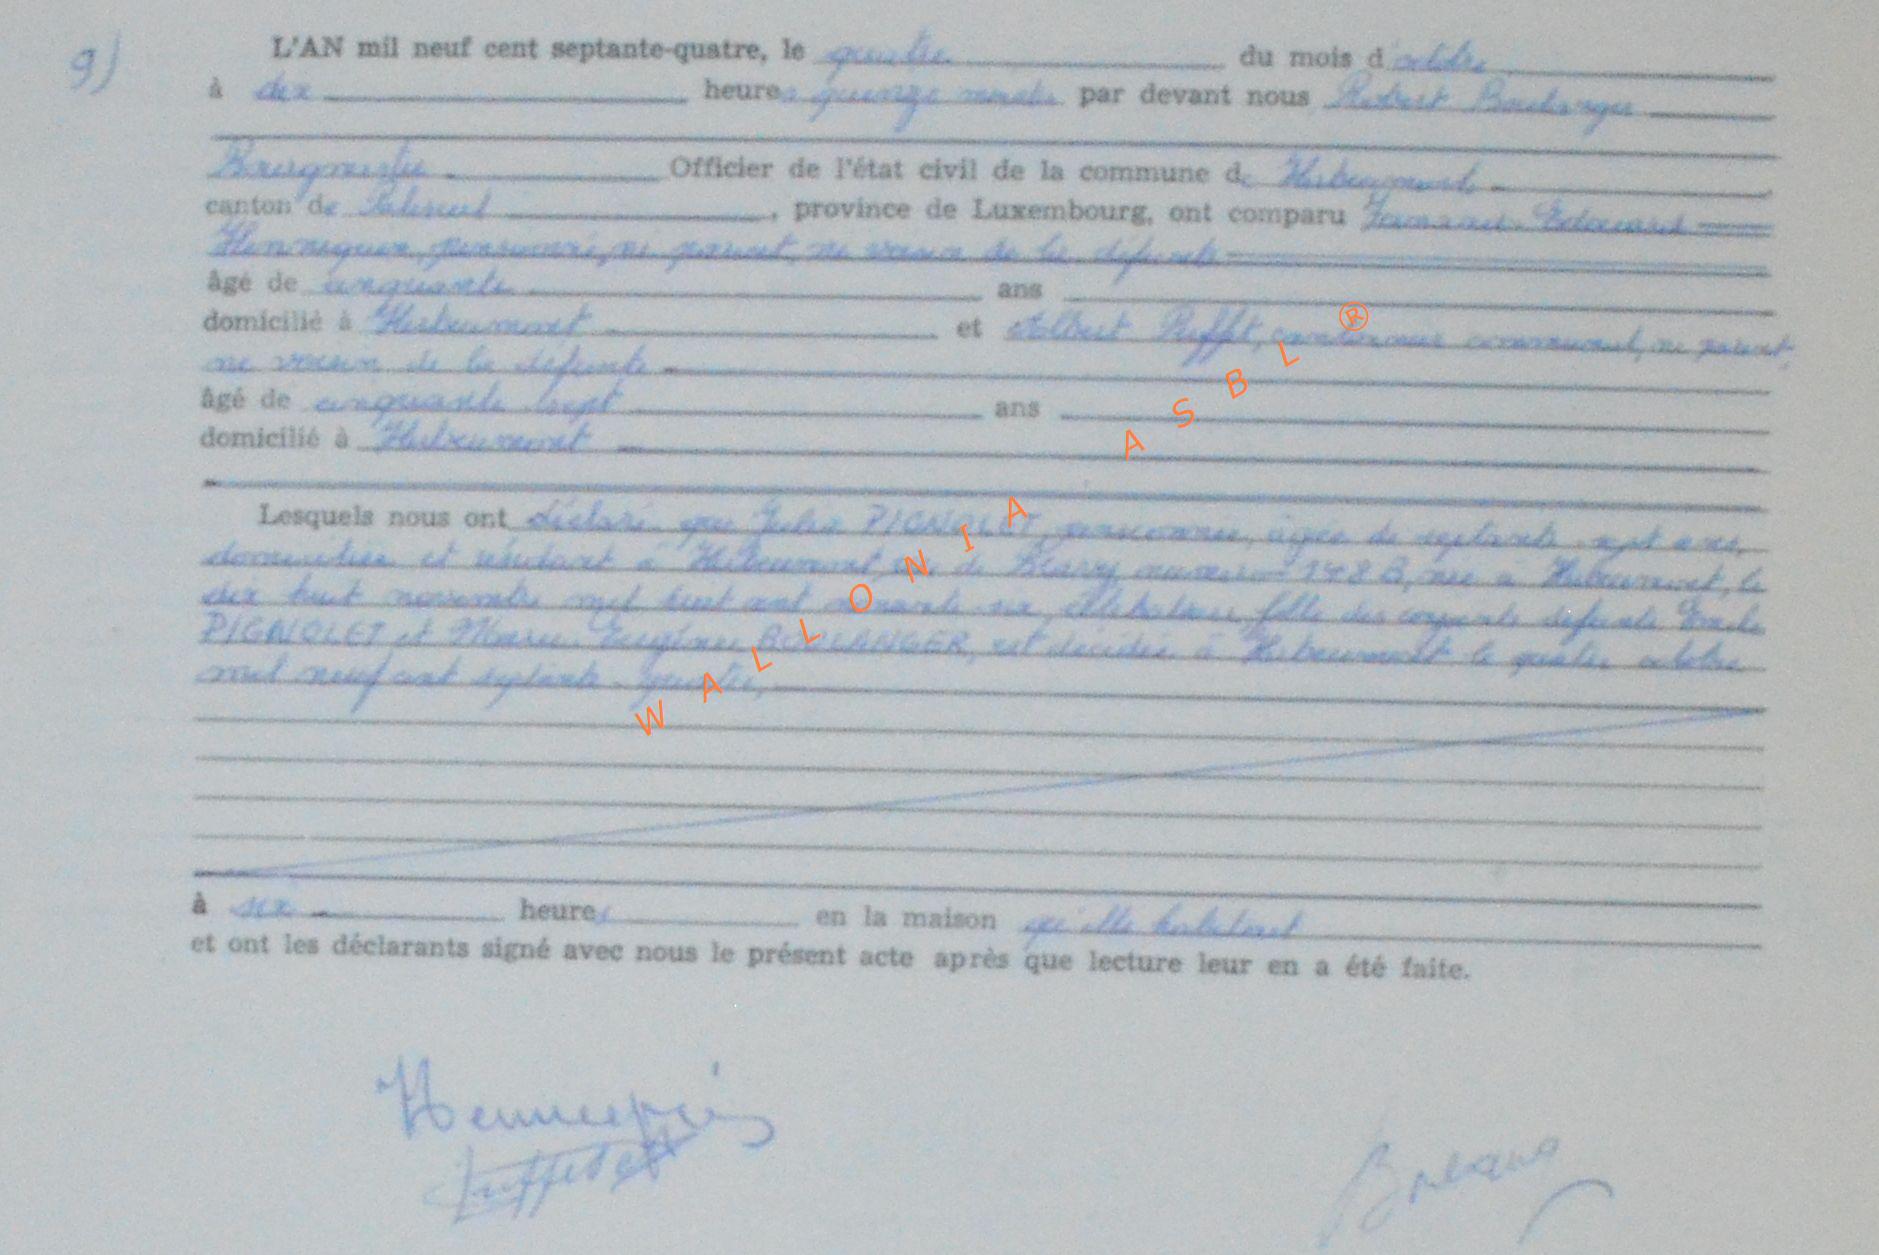 9)
L'AN mil neuf cent septante-quatre, le quatre du mois d'octobre
à dix heures quinze minutes par devant nous Robert Boulanger
Bourgmestre Officier de l'état civil de la commune de Herbeumont
canton de Paliseul, province de Luxembourg, ont comparu Edouard
Hennequin, pensionné, ni parent, ni voisin de la défunte
âgé de cinquante ans
domicilié à Herbeumont et Albert Puffet, cantonnier communal, ni parent,
ni voisin de la défunte
âgé de cinquante sept ans
domicilié à Herbeumont
Lesquels nous ont déclaré que Julia PIGNOLET, pensionnée, âgée de septante sept ans,
domiciliée et résidant à Herbeumont, numéro 148 B, née à Herbeumont, le
dix huit novembre mil huit cent nonante six, célibataire, fille des conjoints défunts Emile
PIGNOLET et Marie Eugénie BOULANGER, est décédée à Herbeumont le quatre octobre
mil neuf cent septante-quatre,
à six heures en la maison qu'elle habitait
et ont les déclarants signé avec nous le présent acte après que lecture leur en a été faite.
Hennequin
WALLONIA ASBL ®